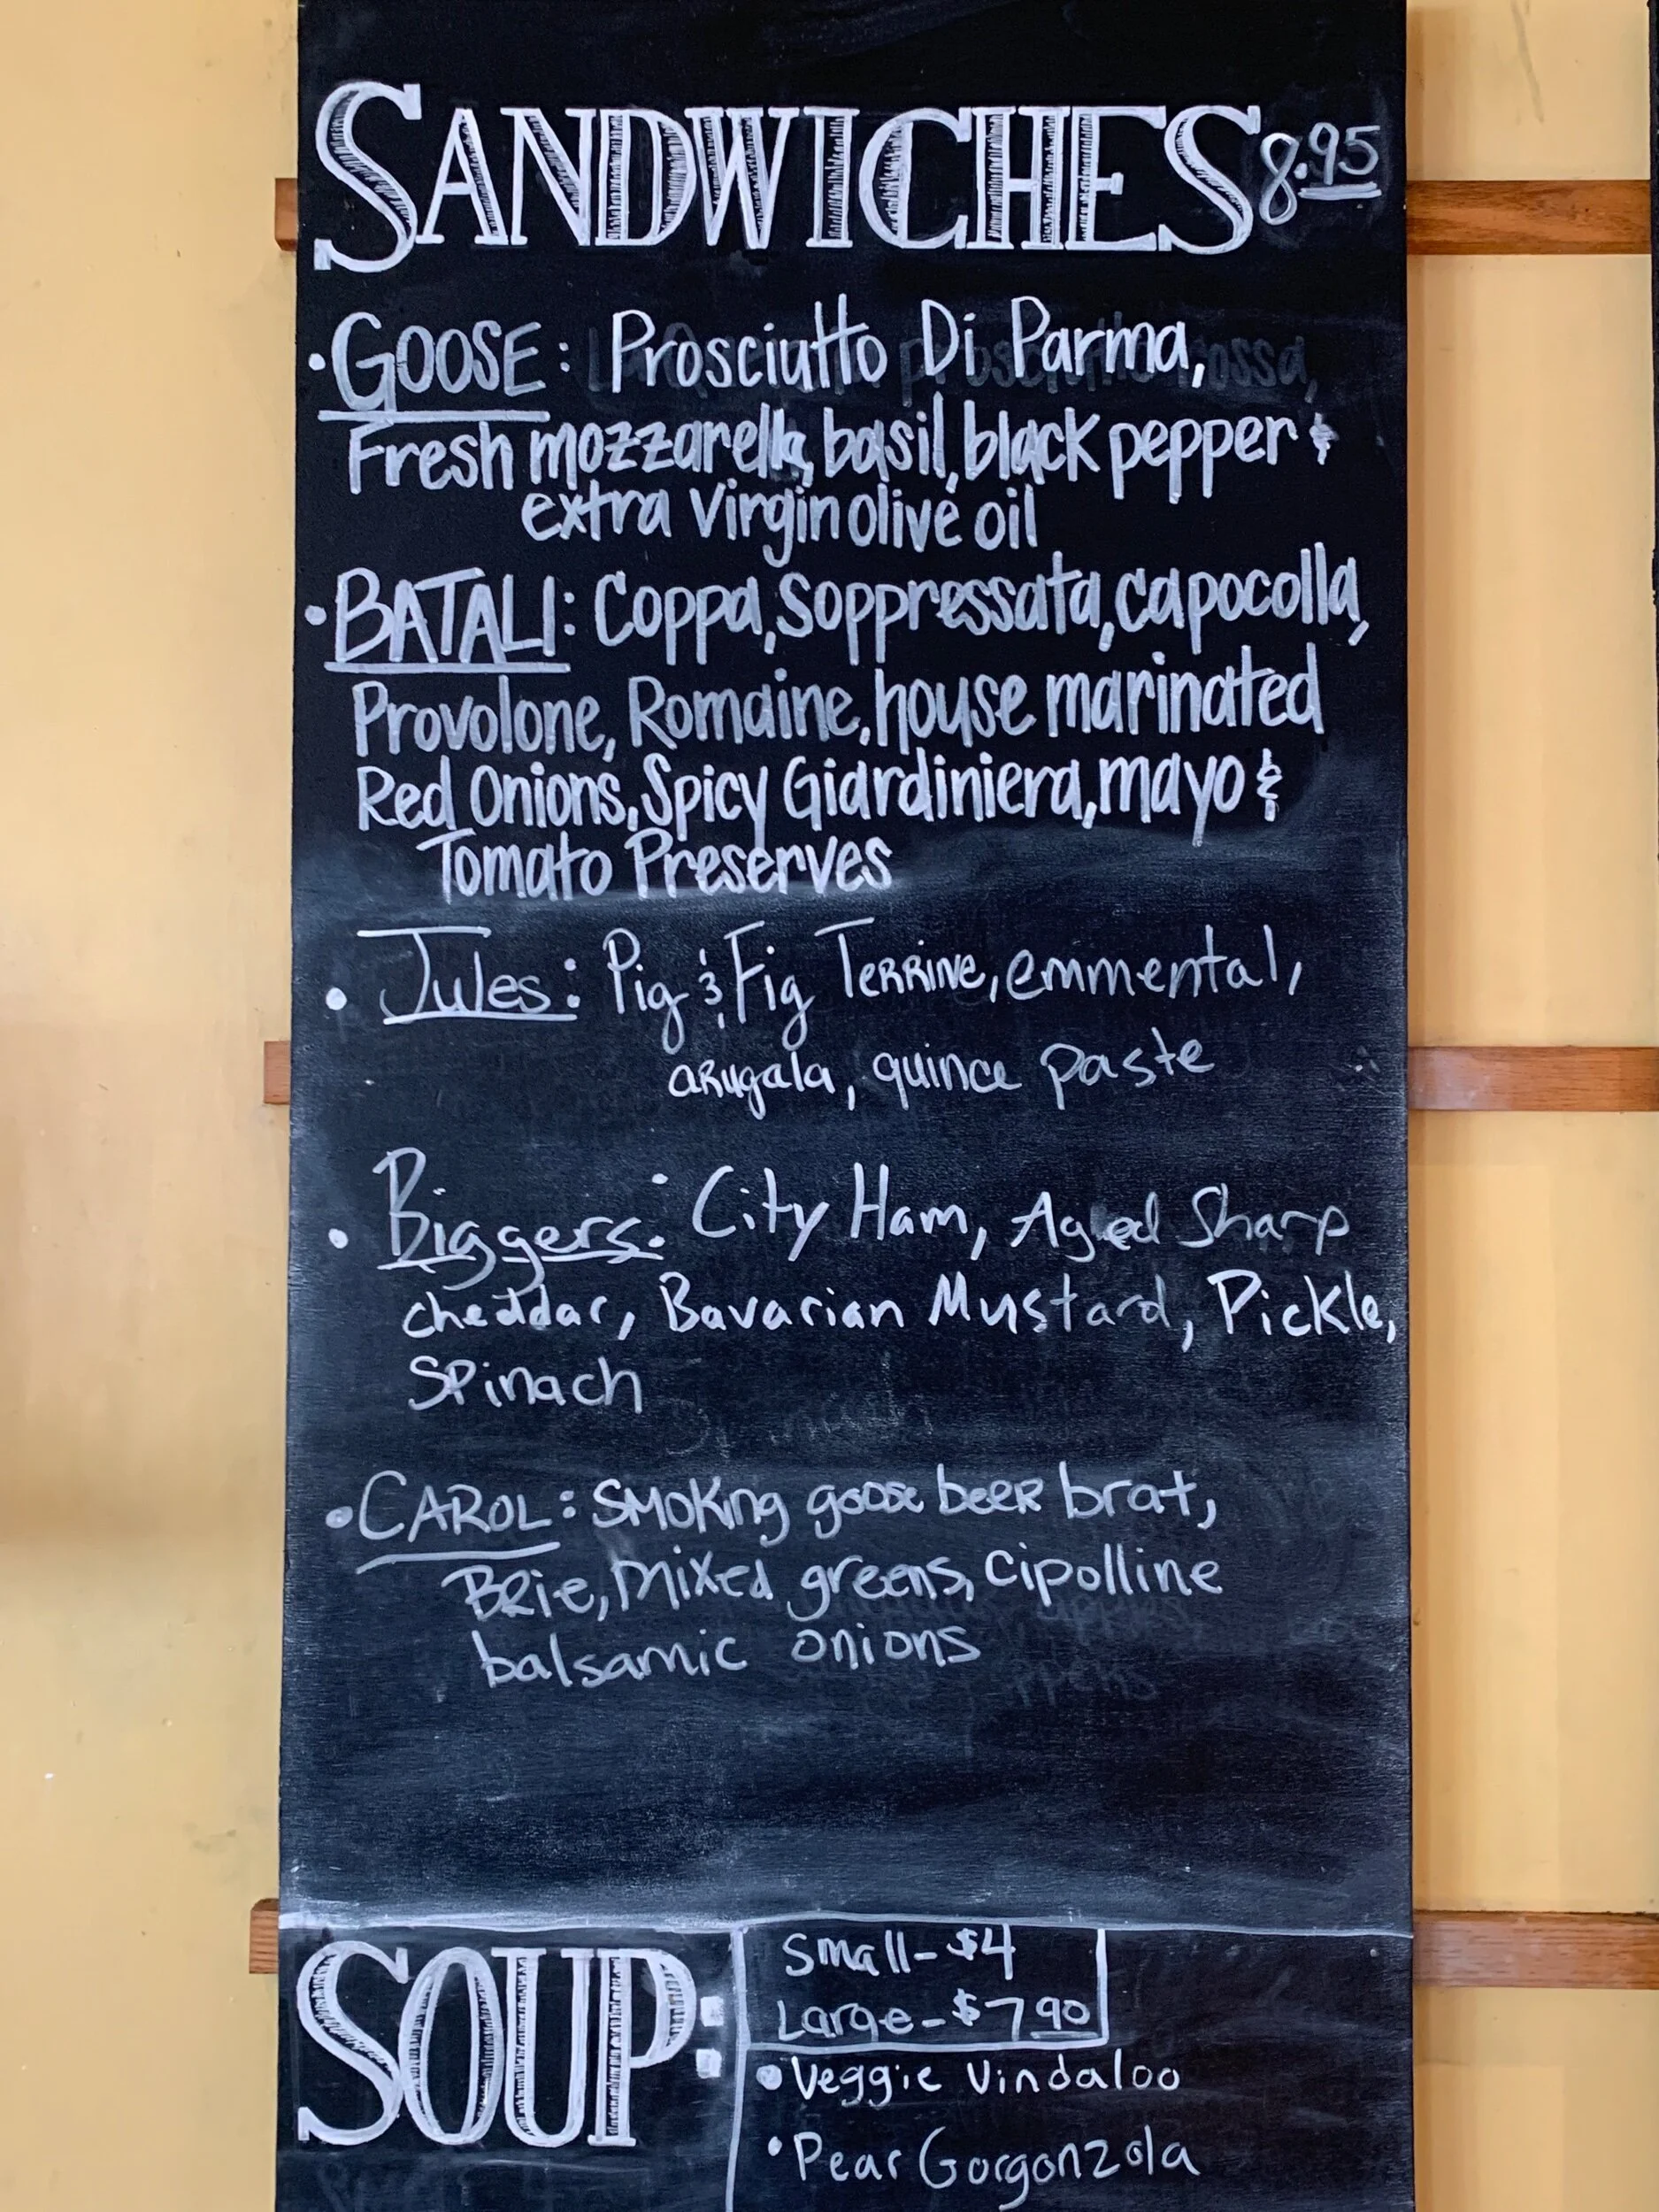 SANDWICHES 8.95
• GOOSE: Prosciutto Di Parma,
Fresh mozzarella, basil, black pepper &
extra virgin olive oil
• BATALI: Coppa, Soppressata, capocolla,
Provolone, Romaine, house marinated
Red Onions, Spicy Giardiniera, mayo &
Tomato Preserves
• Jules: Pig & Fig Terrine, emmental,
arugala, quince paste
• Biggers: City Ham, Aged Sharp
cheddar, Bavarian Mustard, Pickle,
Spinach
• CAROL: Smoking goose beer brat,
Brie, mixed greens, cipolline
balsamic onions
SOUP:
Small - $4
Large - $7.90
• Veggie Vindaloo
• Pear Gorgonzola